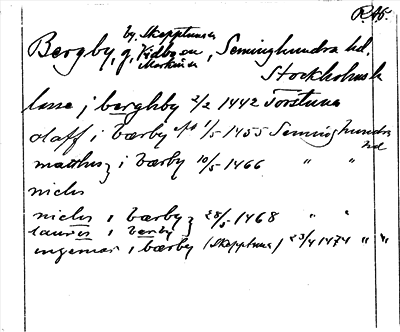 RA6.
by, Skepptuna
Bergby, g, Vidbo sn, Seminghundra hd.
Markim
Stockholms l.
lasse j berghby 2/2 1442 Torstuna
olaff i bærby 1/5 1455 Seminghundra
hd
mattius i bærby 10/5 1466 " "
niclis
niclis i bærby 28/5 1468 " "
lauris i bærby
ingemar i bærby (Skepptuna) 23/4 1474 " "